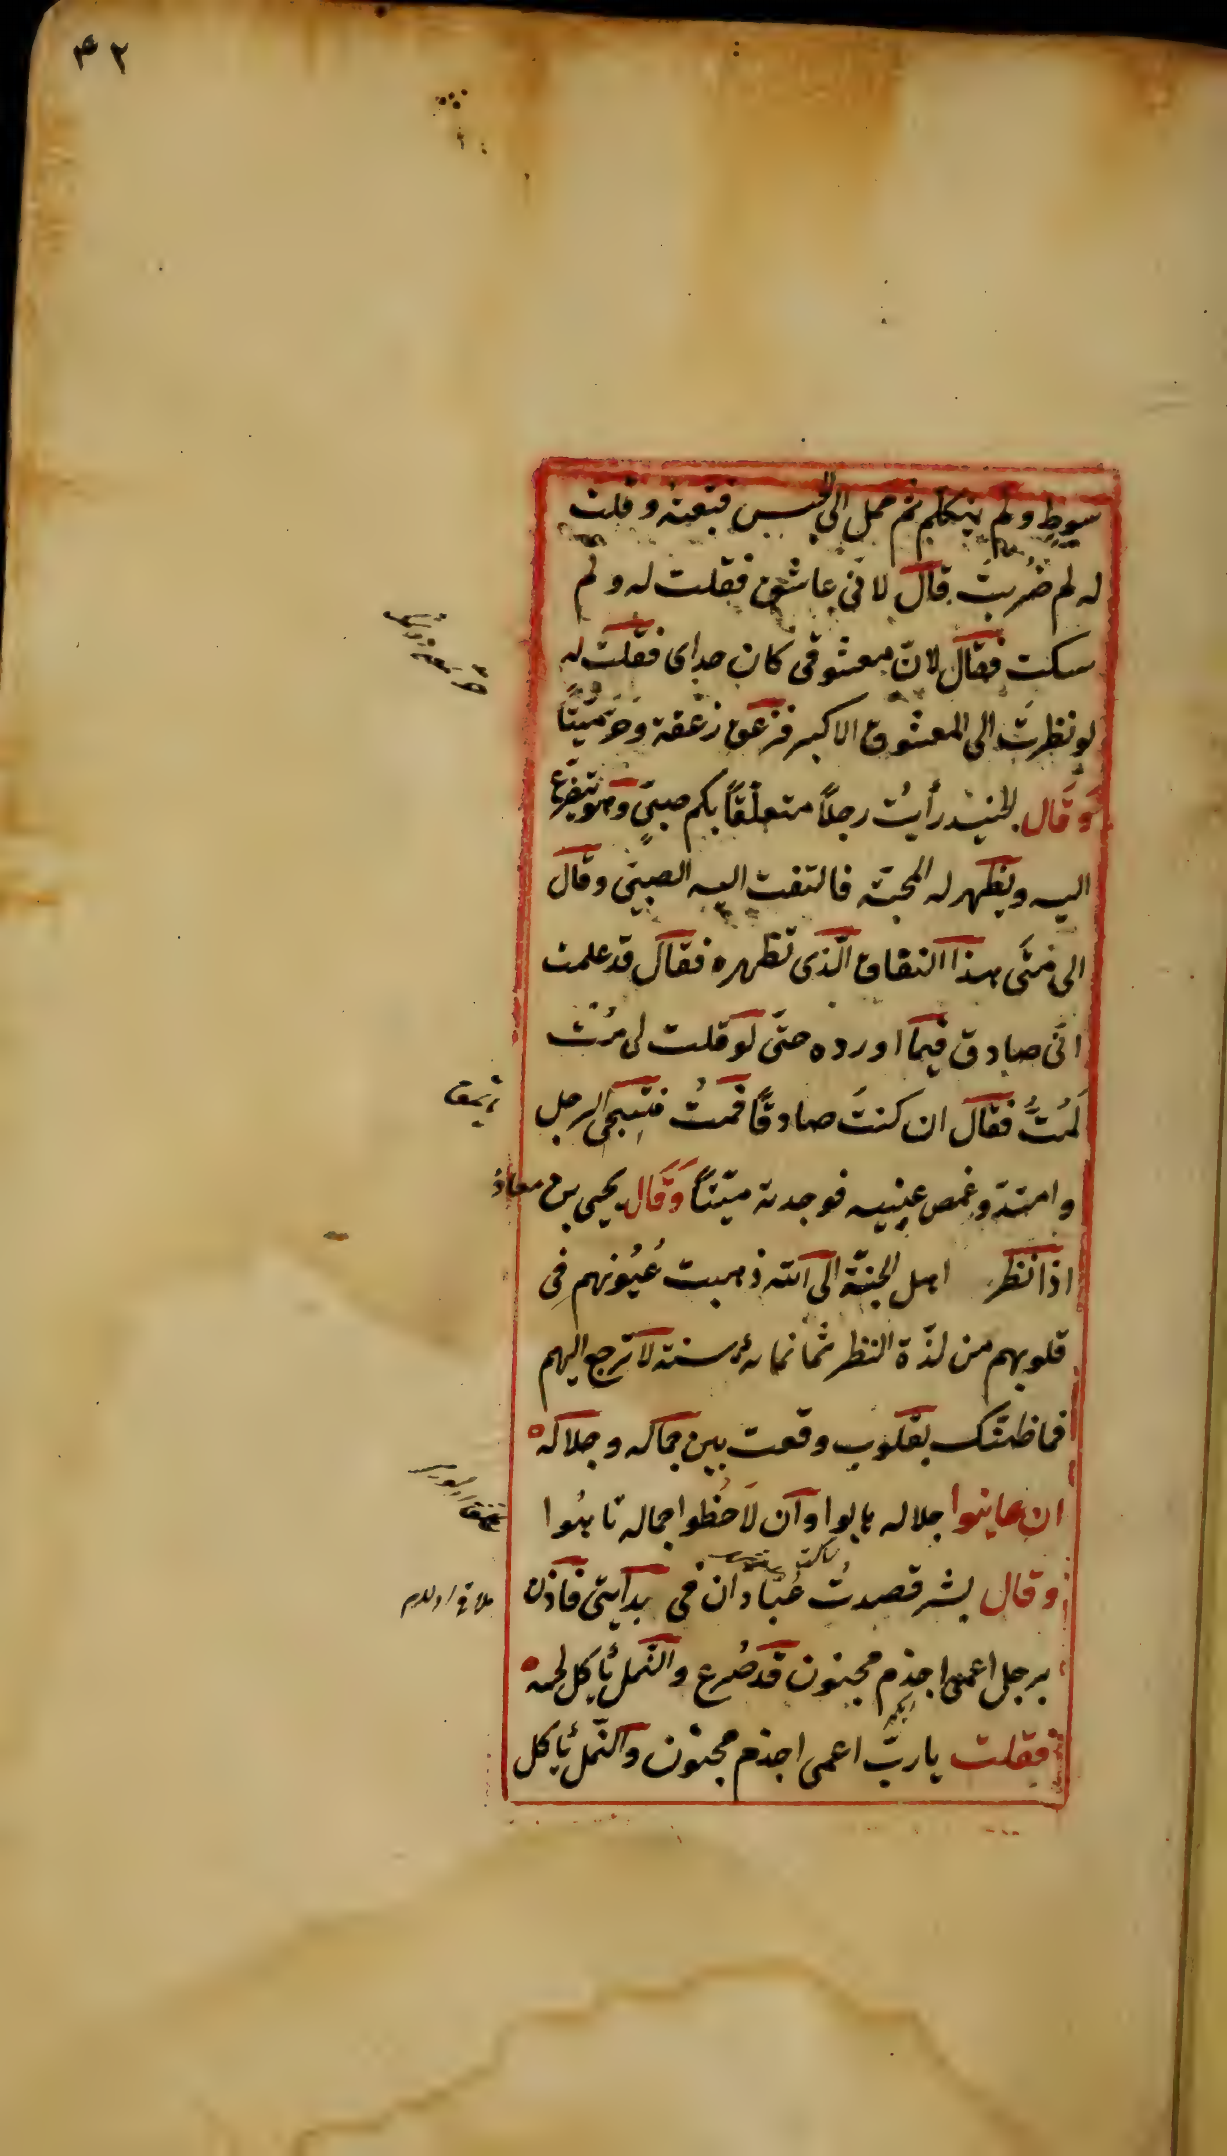 ٤٢
سوط ولم يتكلم ثم حمل الى الحبس فتبعته وقلت
له لم ضربت قال لانى عاشق فقلت له ولم
سكت فقال لانّ معشوقى كان حداى فقلت له
لو نظرت الى المعشوق الاكبر فزعق زعقة وخر ميتاً
وَقَال الجنيد رأيت رجلاً متعلّقاً بكم صبىّ وهو يتضرع
اليه ويظهر له المحبّة فالتفت اليه الصبىّ وقال
الى متى هذا النفاق الّذى تظهره فقال قد علمت
انّى صادق فيما اورده حتّى لو قلت لى مُتْ
لَمُتُّ فقال ان كنتَ صادقاً فمت فتسجى الرجل
وامتدّ وغمض عينيه فوجدته ميّتاً وَقَال يحيى بن معاذ
اذا نظر اهل الجنّة الى الله ذهبت عُيُونهم فى
قلوبهم من لذّة النظر ثمانمائة سنة لا ترجع اليهم
فما ظنّك بقلوب وقعت بين جماله وجلاله
ان عاينوا جلاله هابوا وان لاحظوا جماله تابُوا
وقال بشر قصدتُ عُبّادان فى بدايتى فاذن
برجل اعمى اجذم مجنون قد صُرع والنمل يأكل لحمه
فقلت يا ربّ اعمى اجذم مجنون والنّمل يأكل